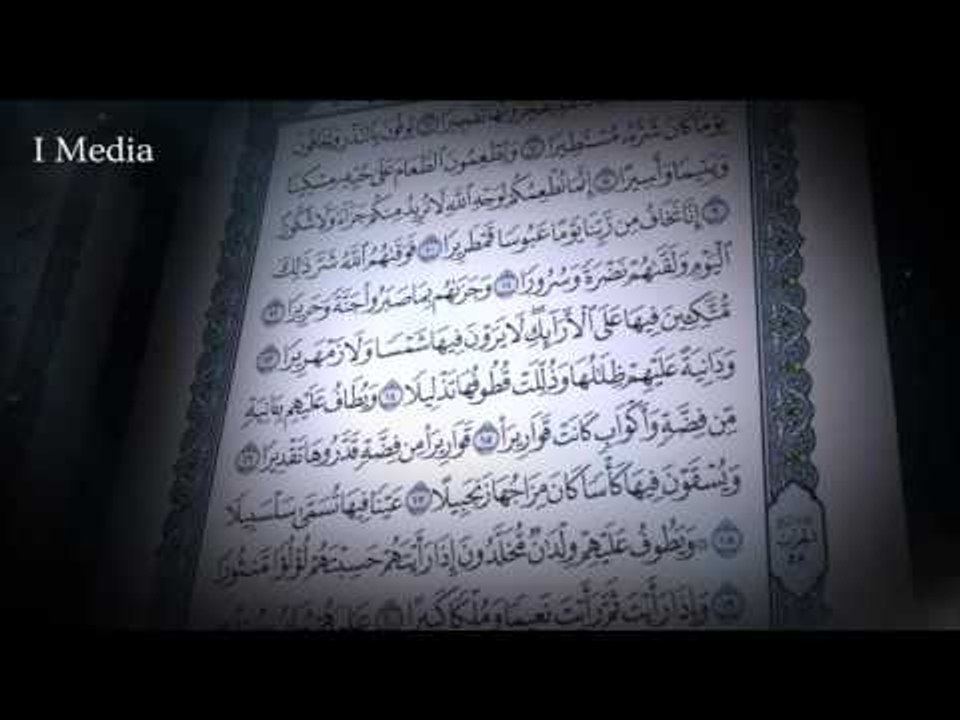 I Media
تَفْجِيرًا ٦ يُوفُونَ بِٱلنَّذْرِ وَيَخَافُونَ
يَوْمًا كَانَ شَرُّهُۥ مُسْتَطِيرًا ٧ وَيُطْعِمُونَ ٱلطَّعَامَ عَلَىٰ حُبِّهِۦ مِسْكِينًا
وَيَتِيمًا وَأَسِيرًا ٨ إِنَّمَا نُطْعِمُكُمْ لِوَجْهِ ٱللَّهِ لَا نُرِيدُ مِنكُمْ جَزَآءً وَلَا شُكُورًا
٩ إِنَّا نَخَافُ مِن رَّبِّنَا يَوْمًا عَبُوسًا قَمْطَرِيرًا ١٠ فَوَقَىٰهُمُ ٱللَّهُ شَرَّ ذَٰلِكَ
ٱلْيَوْمِ وَلَقَّىٰهُمْ نَضْرَةً وَسُرُورًا ١١ وَجَزَىٰهُم بِمَا صَبَرُوا۟ جَنَّةً وَحَرِيرًا ١٢
مُّتَّكِـِٔينَ فِيهَا عَلَى ٱلْأَرَآئِكِ ۖ لَا يَرَوْنَ فِيهَا شَمْسًا وَلَا زَمْهَرِيرًا ١٣
وَدَانِيَةً عَلَيْهِمْ ظِلَٰلُهَا وَذُلِّلَتْ قُطُوفُهَا تَذْلِيلًا ١٤ وَيُطَافُ عَلَيْهِم بِـَٔانِيَةٍ
مِّن فِضَّةٍ وَأَكْوَابٍ كَانَتْ قَوَارِيرَا۠ ١٥ قَوَارِيرَا۟ مِن فِضَّةٍ قَدَّرُوهَا تَقْدِيرًا ١٦
وَيُسْقَوْنَ فِيهَا كَأْسًا كَانَ مِزَاجُهَا زَنجَبِيلًا ١٧ عَيْنًا فِيهَا تُسَمَّىٰ سَلْسَبِيلًا
١٨ ۞ وَيَطُوفُ عَلَيْهِمْ وِلْدَٰنٌ مُّخَلَّدُونَ إِذَا رَأَيْتَهُمْ حَسِبْتَهُمْ لُؤْلُؤًا مَّنثُورًا
١٩ وَإِذَا رَأَيْتَ ثَمَّ رَأَيْتَ نَعِيمًا وَمُلْكًا كَبِيرًا ٢٠